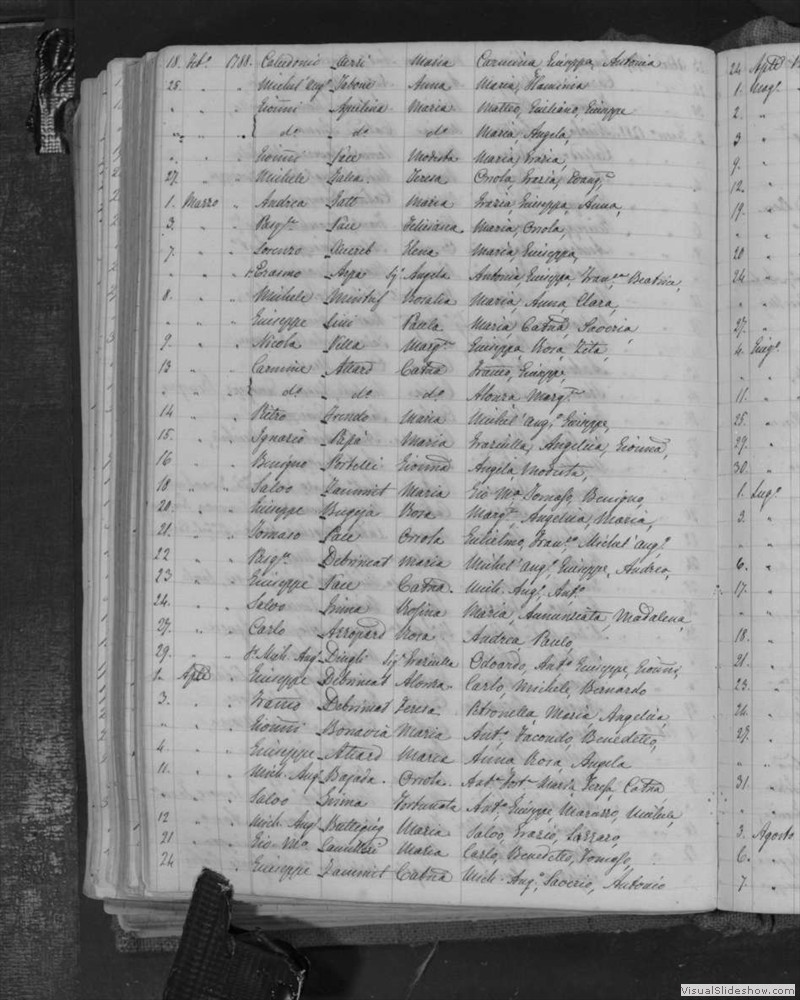 18. Feb.o 1788. Calcedonio Maria Carmina Giuseppa, Antonia
25. " " Michel'Ang.o Zabone Anna Maria, Flaminia
" " " Gioanni Aquilina Maria Matteo, Giuliano, Giuseppe
" " " do do do Maria, Angela,
" " " Gioanni Pace Modesta Maria, Grazia,
27. " " Michele Teresa Orsola, Grazia, Evang.a
1. Marzo " Andrea Gatt Maria Grazia, Giuseppa, Anna,
3. " " Pasq.le Pace Feliciana Maria, Orsola,
7. " " Lorenzo Elena Maria, Giuseppa,
" " Erasmo Sig.a Angela Antonia, Giuseppa, Fran.ca Beatrice,
8. " " Michele Mintuf Rosalia Maria, Anna, Clara,
" " " Giuseppe Paula Maria, Catna, Saveria
9. " " Nicola Villa Marg.ta Giuseppa, Rosa, Zita,
13 " " Carmine Attard Catna Franco, Giuseppe,
" " " do do do Alonza Marg.ta
14 " " Pietro Maria Michel'Ang.o, Giuseppe,
15. " " Ignazio Papà Maria Graziulla, Angelica, Gionna,
16 " " Benigno Portelli Gionna Angela, Modesta,
18 " " Salvo Zammit Maria Gio Ma Tomaso, Benigno,
20. " " Giuseppe Bugeja Rosa Marg.ta Angelica, Maria,
21. " " Tomaso Pace Orsola Gulielmo, Fran.co Michel'Ang.o
22 " " Pasq.le Debrincat Maria Michel'Ang.o, Giuseppe, Andrea,
23 " " Giuseppe Pace Catna. Mich. Ang.o, Ant.o
24. " " Salvo Grima Rosina Maria, Annunziata, Madalena,
27. " " Carlo Azzopard Rosa Andrea, Paulo,
29. " " Mich. Ang.o Dingli Sig.a Graziulla Odoardo, Ant.o Giuseppe, Gioanni,
1. Aple " Giuseppe Debrincat Alonza. Carlo, Michele, Bernardo
3. " " Franco Debrincat Teresa Petronella, Maria Angelica,
" " " Gioanni Bonavia Maria Ant.o, Facondo, Benedetto,
4. " " Giuseppe Attard Maria Anna Rosa Angela
11. " " Mich. Ang.o Bajada. Orsola. Ant.a Fort.a Maria, Teresa, Catna
" " " Salvo Grima Fortunata Ant.o, Giuseppe, Michele,
12 " " Mich. Ang.o Buttigieg Maria Salvo, Grazio, Lazzaro,
21 " " Gio. Ma Maria Carlo, Benedetto, Tomaso,
24 " " Giuseppe Zammit Catna Mich. Ang.o, Saverio, Antonio
24 Aple
1. Mag.o
2. "
3 "
9. "
12. "
19. "
" "
20 "
24 "
" "
27. "
4. Giug.o
" "
11. "
25. "
29. "
30. "
1. Lug.o
3. "
" "
6. "
17. "
" "
18. "
21. "
23. "
24. "
27. "
" "
31. "
" "
3. Agosto
6. "
7. "
VisualSlideshow.com